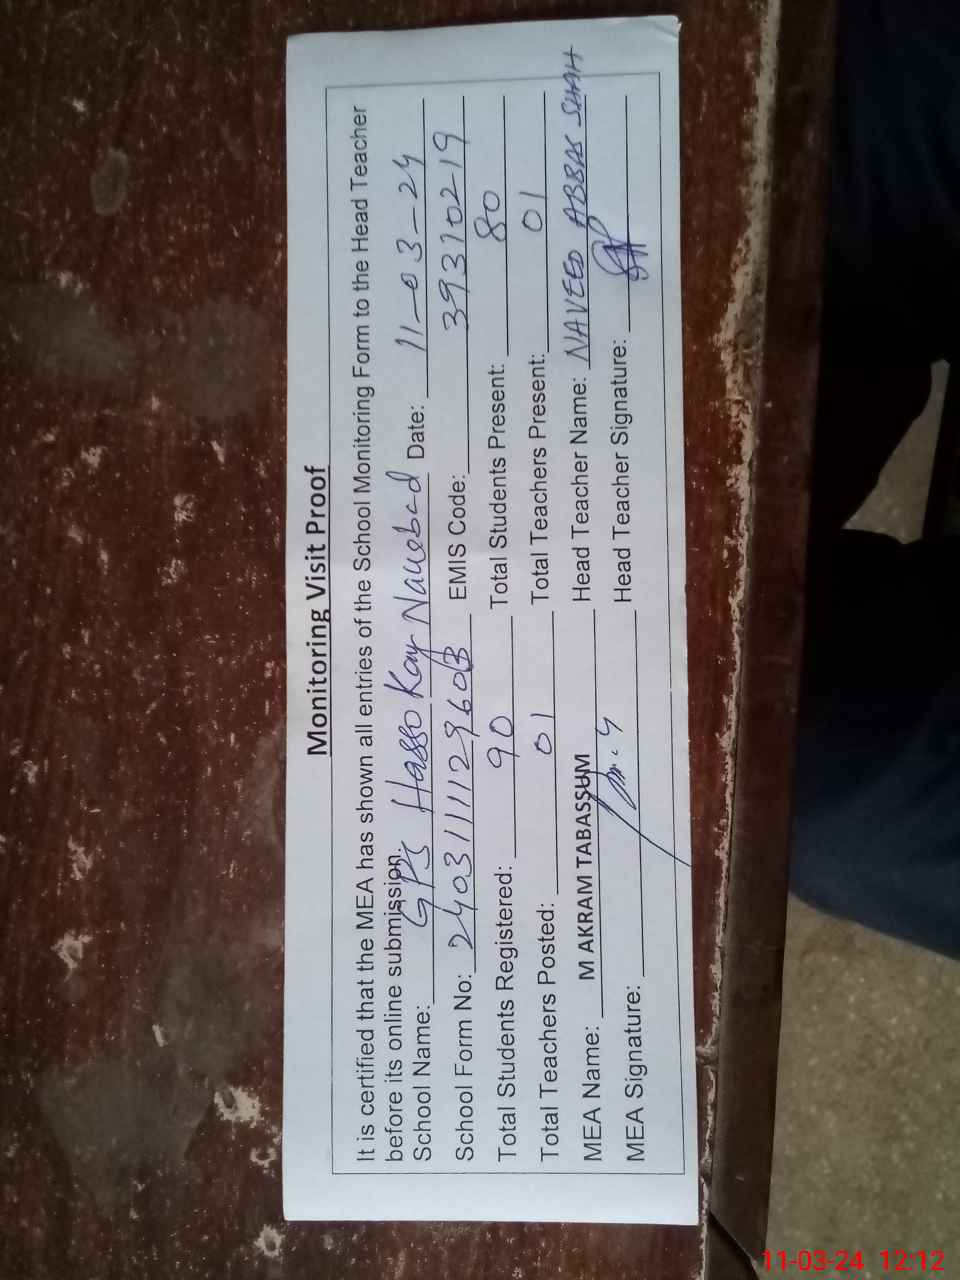 Monitoring Visit Proof
It is certified that the MEA has shown all entries of the School Monitoring Form to the Head Teacher
before its online submission.
School Name: GPS Hasso Kay Naubad Date: 11-03-24
School Form No: 24031111129603 EMIS Code: 39310219
Total Students Registered: 90 Total Students Present: 80
Total Teachers Posted: 01 Total Teachers Present: 01
MEA Name: M AKRAM TABASSUM Head Teacher Name: NAVEED ABBAS SHAH
MEA Signature: Head Teacher Signature:
11-03-24 12:12